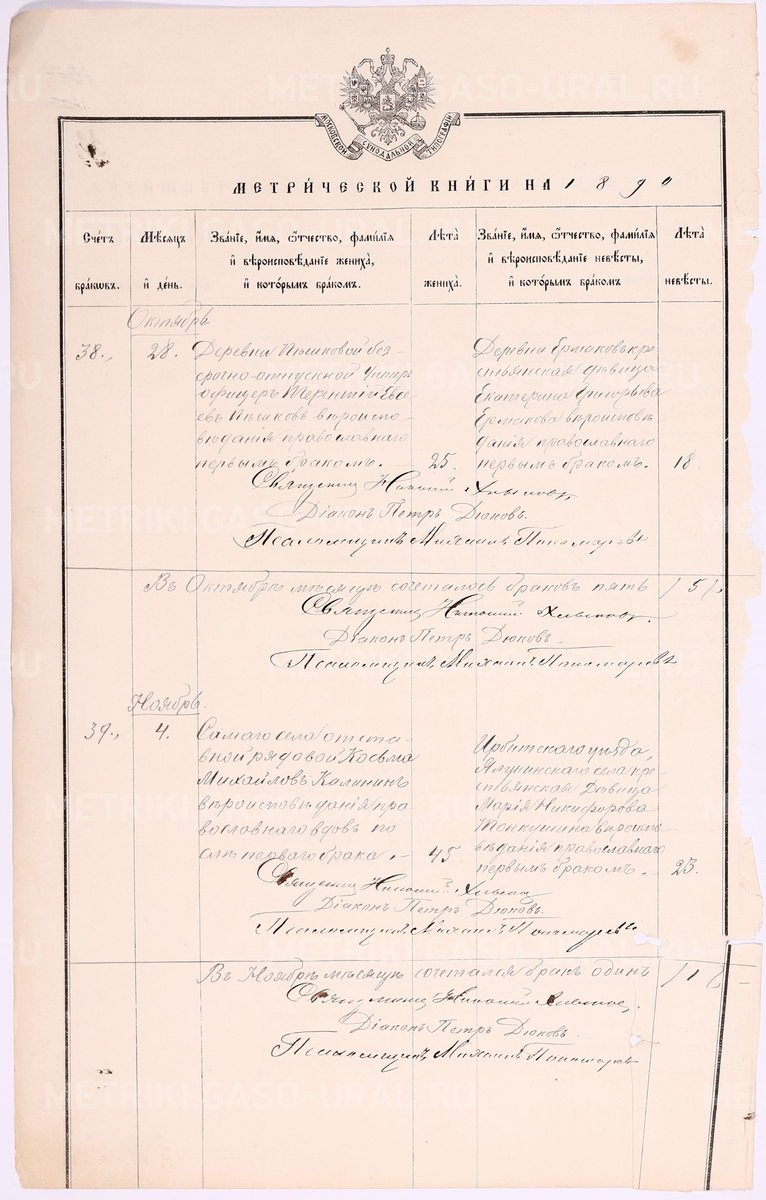 МОСКОВСКОЙ СѴНОДАЛЬНОЙ ТИПОГРАФІИ
МЕТРИ́ЧЕСКОЙ КНИ́ГИ НА 1890
Сче́тъ бра́кωвъ.
Мѣ́сяцъ и҆ де́нь.
Зва́нїе, и҆́мя, ѻ҆́тчество, фами́лїя и҆ вѣроисповѣ́данїе жениха̀, и҆ кото́рымъ бра́комъ.
Лѣ́та жениха̀.
Зва́нїе, и҆́мя, ѻ҆́тчество, фами́лїя и҆ вѣроисповѣ́данїе невѣ́сты, и҆ кото́рымъ бра́комъ
Лѣ́та невѣ́сты.
Октябрь
38.,
28.
Деревни Пьшковой без-
срочно-отпускной Унтеръ
офицеръ Терентій Евсе
евъ Пьшковъ вѣроиспо
вѣданія православнаго
первымъ бракомъ.
25.
Деревни Ермаковъ кре
стьянская дѣвица
Екатерина Григорьева
Ермакова вѣроисповѣ
данія православнаго
первымъ бракомъ.
18.
Священник
Діаконъ Петръ Дюковъ.
Псаломщикъ Михаилъ Пономаревъ
Въ Октябрѣ мѣсяцѣ сочеталось браковъ пять /5/.
Священник
Діаконъ Петръ Дюковъ.
Псаломщикъ Михаилъ Пономаревъ
Ноябрь.
39.,
4.
Самаго села отста-
вной рядовой Косьма
Михайловъ Калининъ
вѣроисповѣданія пра
вославнаго вдовъ по
слѣ перваго брака.-
45
Ирбитскаго уѣзда,
Ялунинскаго села кре
стьянская Дѣвица
Марія Никифорова
вѣроиспо
вѣданія православнаго
первымъ бракомъ.
23.
Священник
Діаконъ Петръ Дюковъ.
Псаломщикъ Михаилъ Пономаревъ
Въ Ноябрѣ мѣсяцѣ сочетался бракъ одинъ /1/
Священник
Діаконъ Петръ Дюковъ.
Псаломщикъ Михаилъ Пономаревъ
METRIKI.GASO-URAL.RU